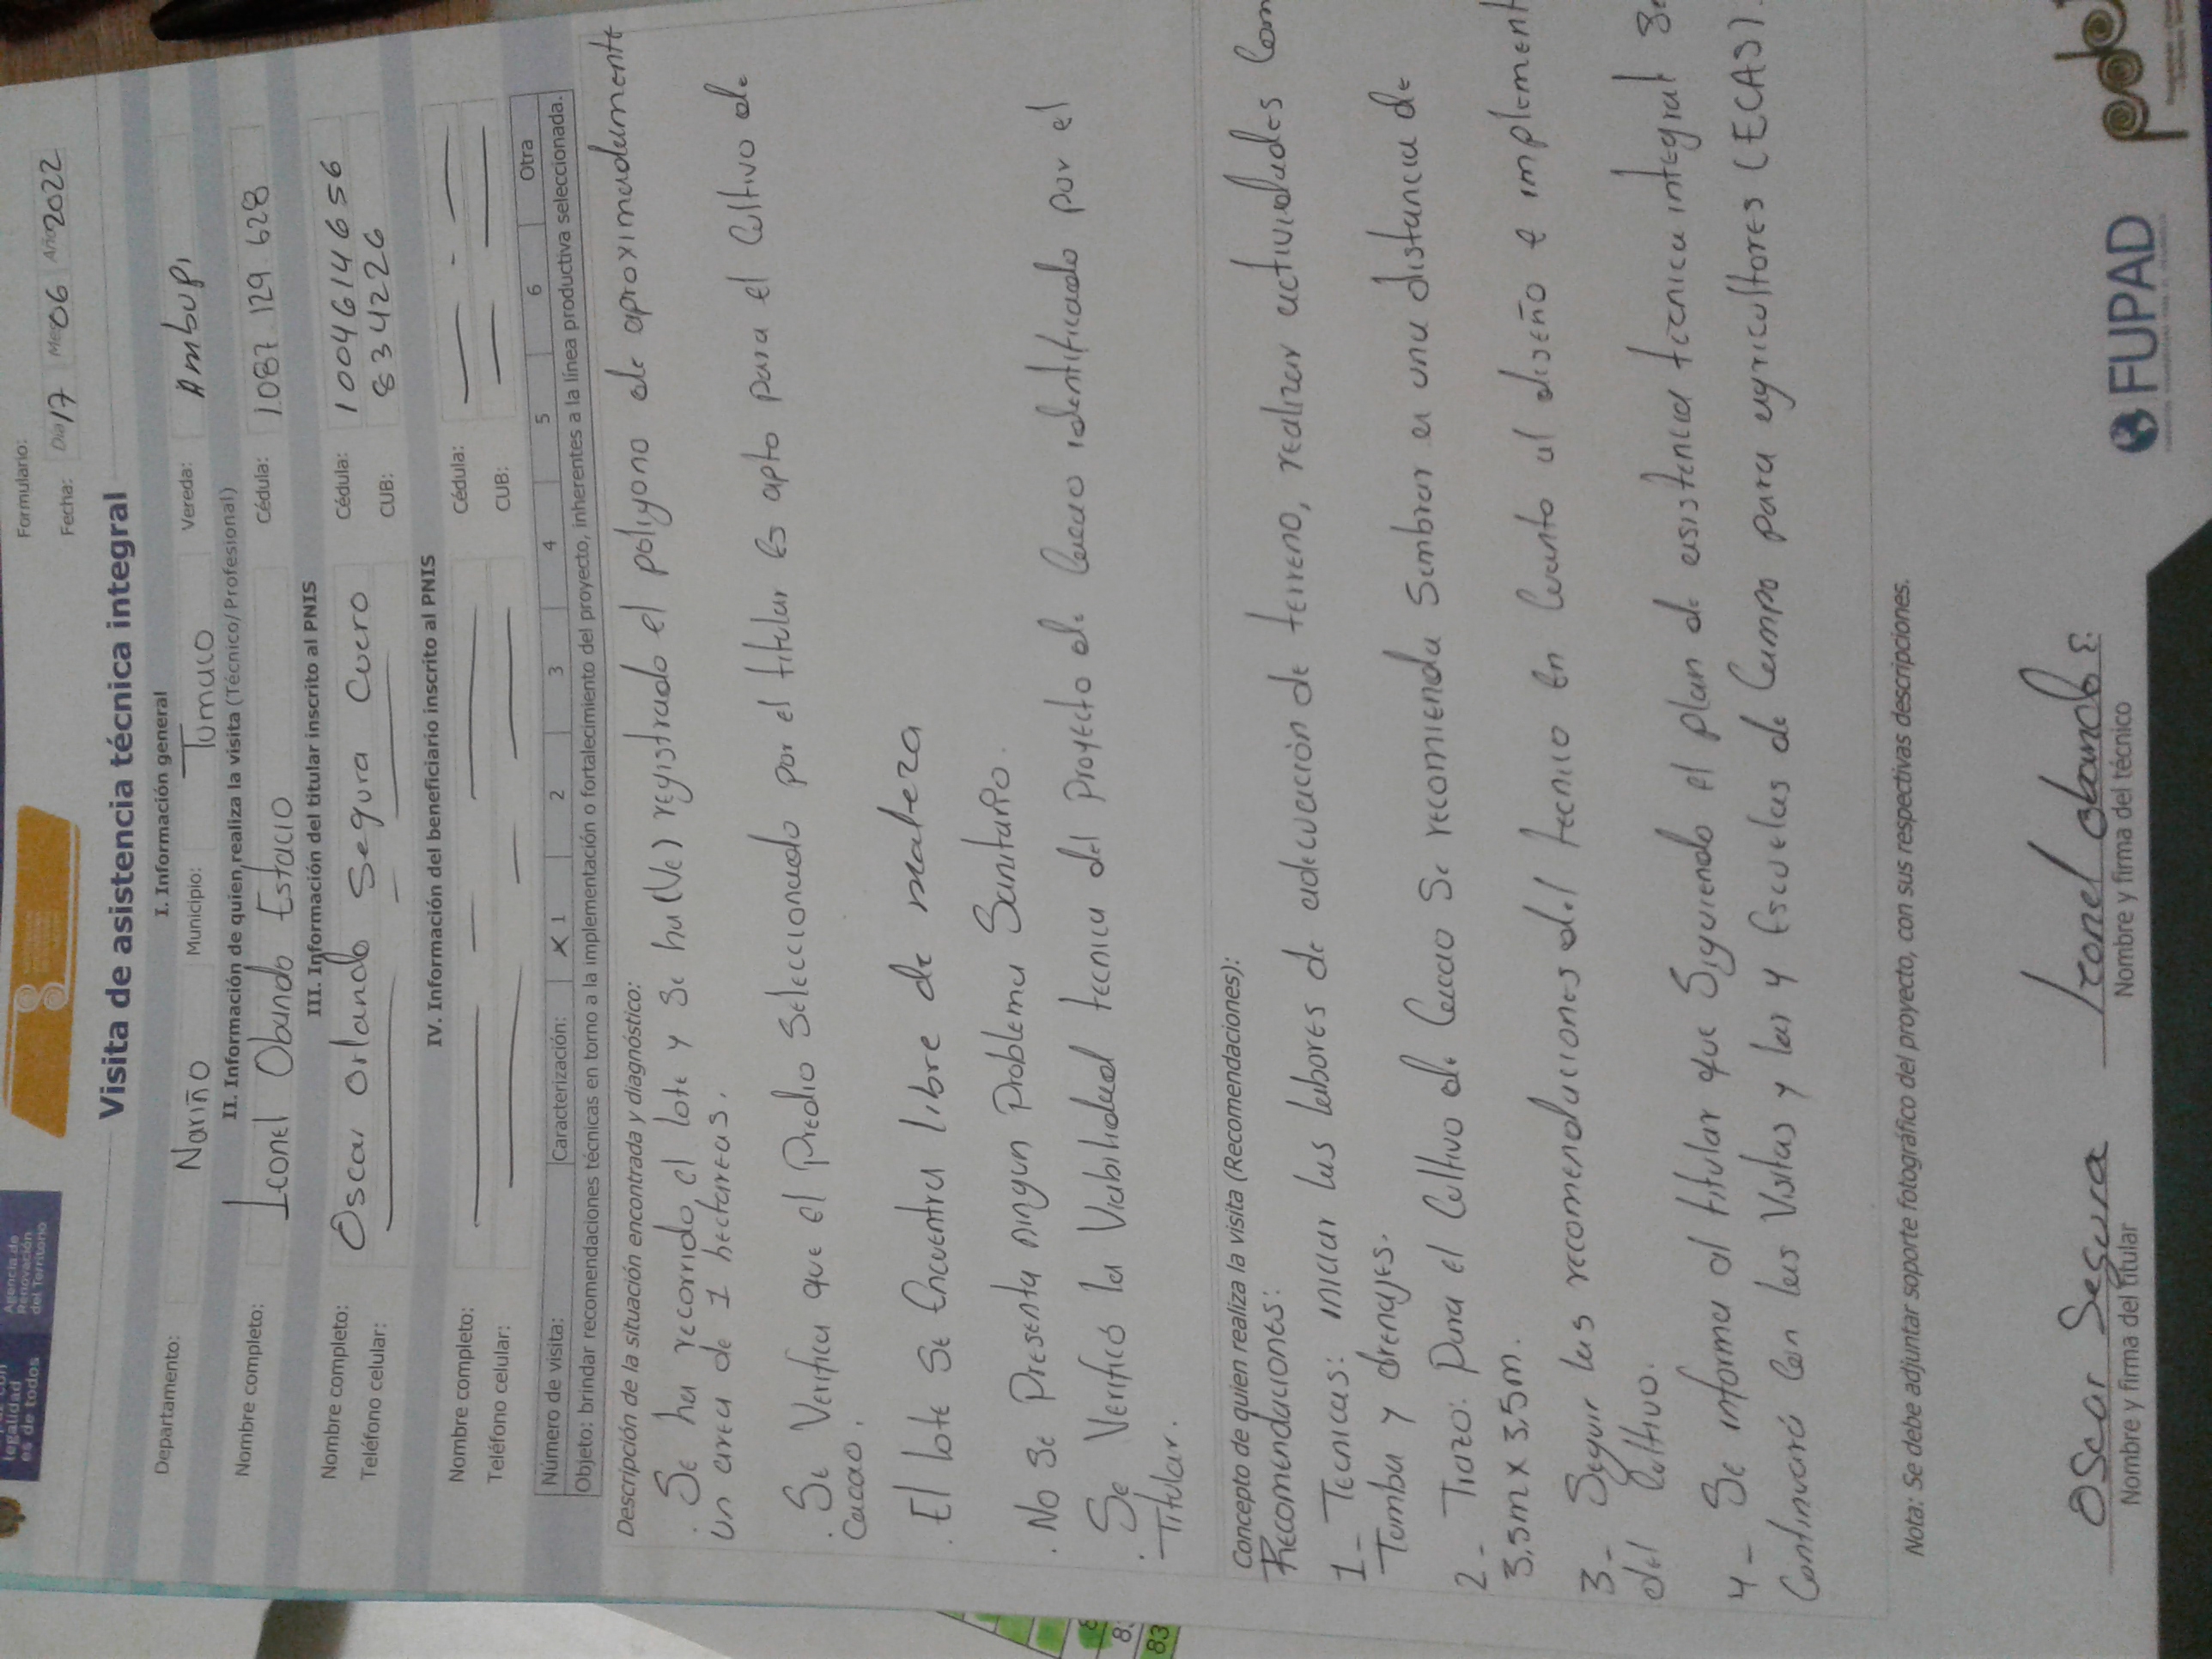 legalidad
es de todos
Agencia de
Renovación
del Territorio
Formulario:
Fecha: Día 17 Mes 06 Año 2022
Visita de asistencia técnica integral
I. Información general
Departamento: Nariño Municipio: Tumaco Vereda: Ambupi
II. Información de quien realiza la visita (Técnico/Profesional)
Nombre completo: Leonel Obando Estacio Cédula: 1.087.129.628
III. Información del titular inscrito al PNIS
Nombre completo: Oscar Orlando Segura Cuero Cédula: 1004614656
Teléfono celular: CUB: 834226
IV. Información del beneficiario inscrito al PNIS
Nombre completo: Cédula:
Teléfono celular: CUB:
Número de visita: Caracterización: X 1 2 3 4 5 6 Otra
Objeto: brindar recomendaciones técnicas en torno a la implementación o fortalecimiento del proyecto, inherentes a la línea productiva seleccionada.
Descripción de la situación encontrada y diagnóstico:
· Se ha recorrido el lote y se ha (Ve) registrado el poligono de aproximadamente
un area de 1 hectareas.
· Se Verifica que el Predio Seleccionado por el titular es apto para el Cultivo de
Cacao.
· El lote Se Encuentra libre de maleza
· No Se Presenta ningun Problema Sanitario.
· Se Verificó la Viabilidad tecnica del Proyecto de Cacao identificado por el
Titular.
Concepto de quien realiza la visita (Recomendaciones):
Recomendaciones:
1- Tecnicas: iniciar las labores de adecuación de terreno, realizar actividades Com
Tumba y drenajes.
2- Trazo: Para el Cultivo de Cacao Se recomienda Sembrar a una distancia de
3,5m x 3,5m.
3- Seguir las recomendaciones del tecnico En Cuanto al diseño e implement
del Cultivo.
4- Se informa al titular que Siguiendo el plan de asistencia tecnica integral Se
Continuará Con las Visitas y las y Escuelas de Campo para agricultores (ECAS).
Nota: Se debe adjuntar soporte fotográfico del proyecto, con sus respectivas descripciones.
Oscar Segura
Nombre y firma del titular
Leonel obando E.
Nombre y firma del técnico
FUPAD
pdet
83